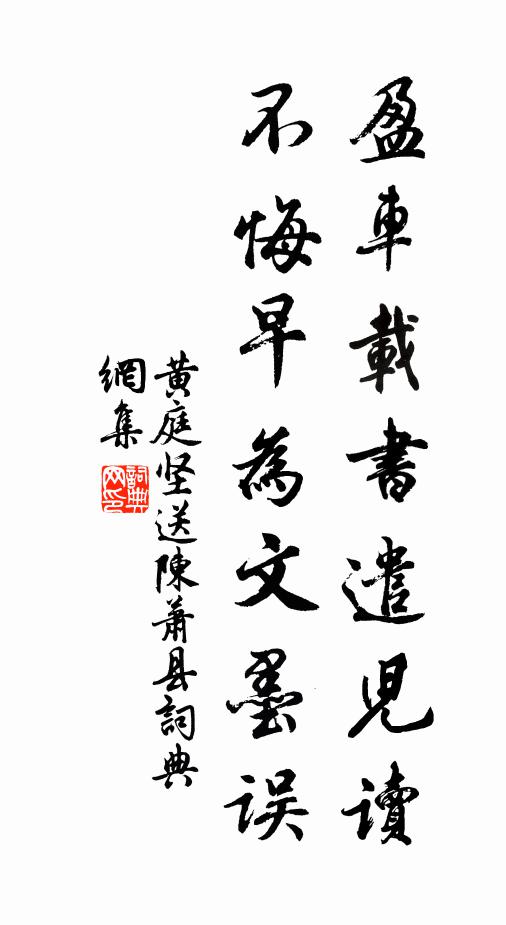 盈車載書遣児读
不悔早為文墨误
黄庭坚送陳蕭县詞典
網集
詞典
网印